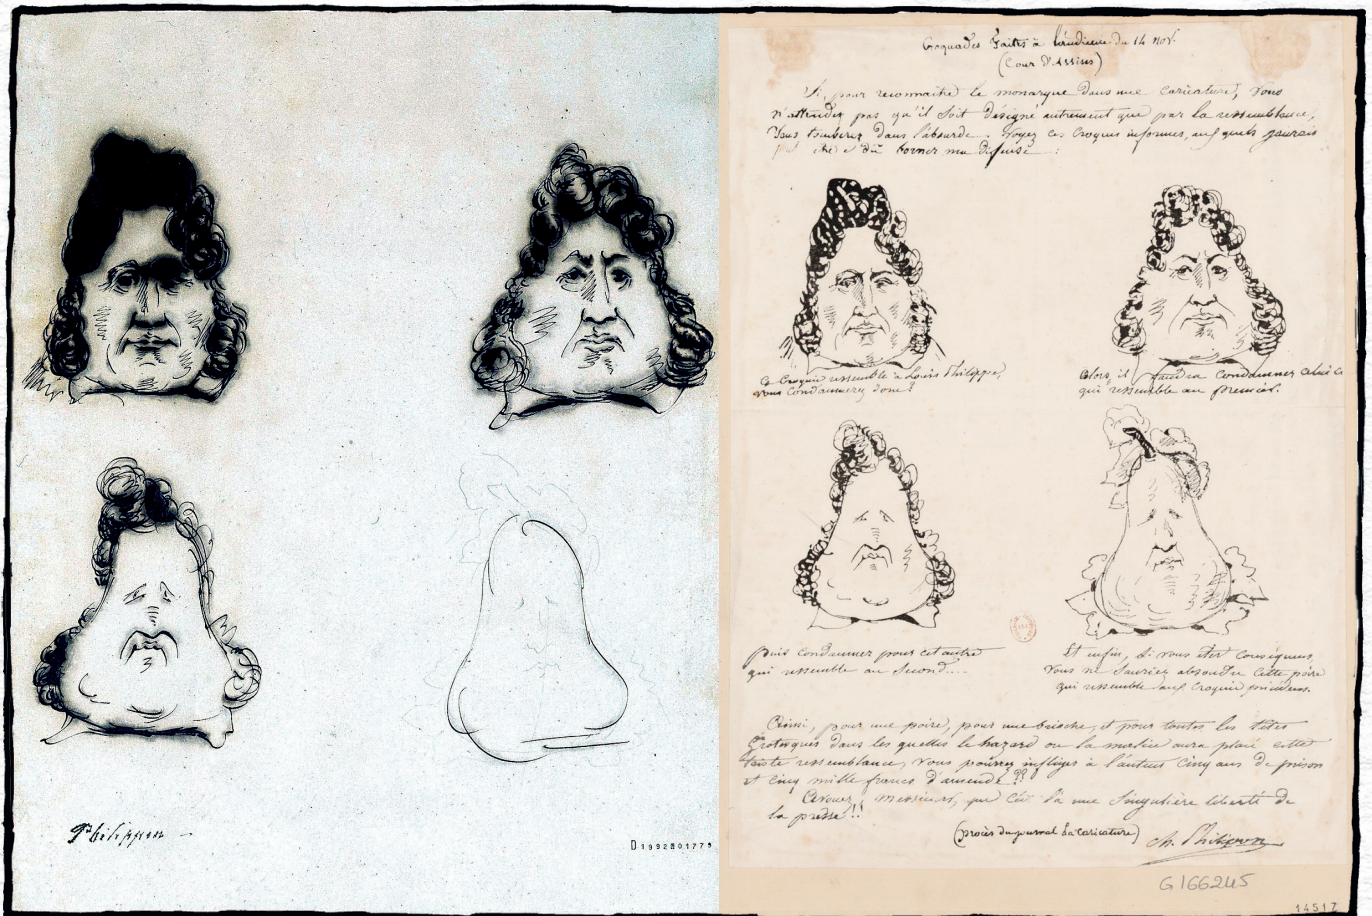 Philippon
D1992801779
Croquades faites à l'audience du 14 Nov.
(Cour d'Assises)
Si, pour reconnaître le monarque dans une caricature, vous
n'attendez pas qu'il soit désigné autrement que par la ressemblance,
vous tomberez dans l'absurde. Voyez ces croquis informes, auxquels j'aurais
peut être dû borner ma défense :
Ce croquis ressemble à Louis Philippe,
vous condamnerez donc ?
Alors il faudra condamner celui ci
qui ressemble au premier.
puis condamner pour cet autre
qui ressemble au second....
Et enfin, si vous êtes conséquens,
vous ne sauriez absoudre cette poire
qui ressemble aux croquis précédens.
Ainsi, pour une poire, pour une brioche, et pour toutes les têtes
grotesques dans les quelles le hazard ou la malice aura placé cette
triste ressemblance, vous pourrez infliger à l'auteur cinq ans de prison
et cinq mille francs d'amende ??
Avouez, Messieurs, que c'est là une singulière liberté de
la presse !!
(procès du journal la caricature)
Ch. Philipon
G166245
14517